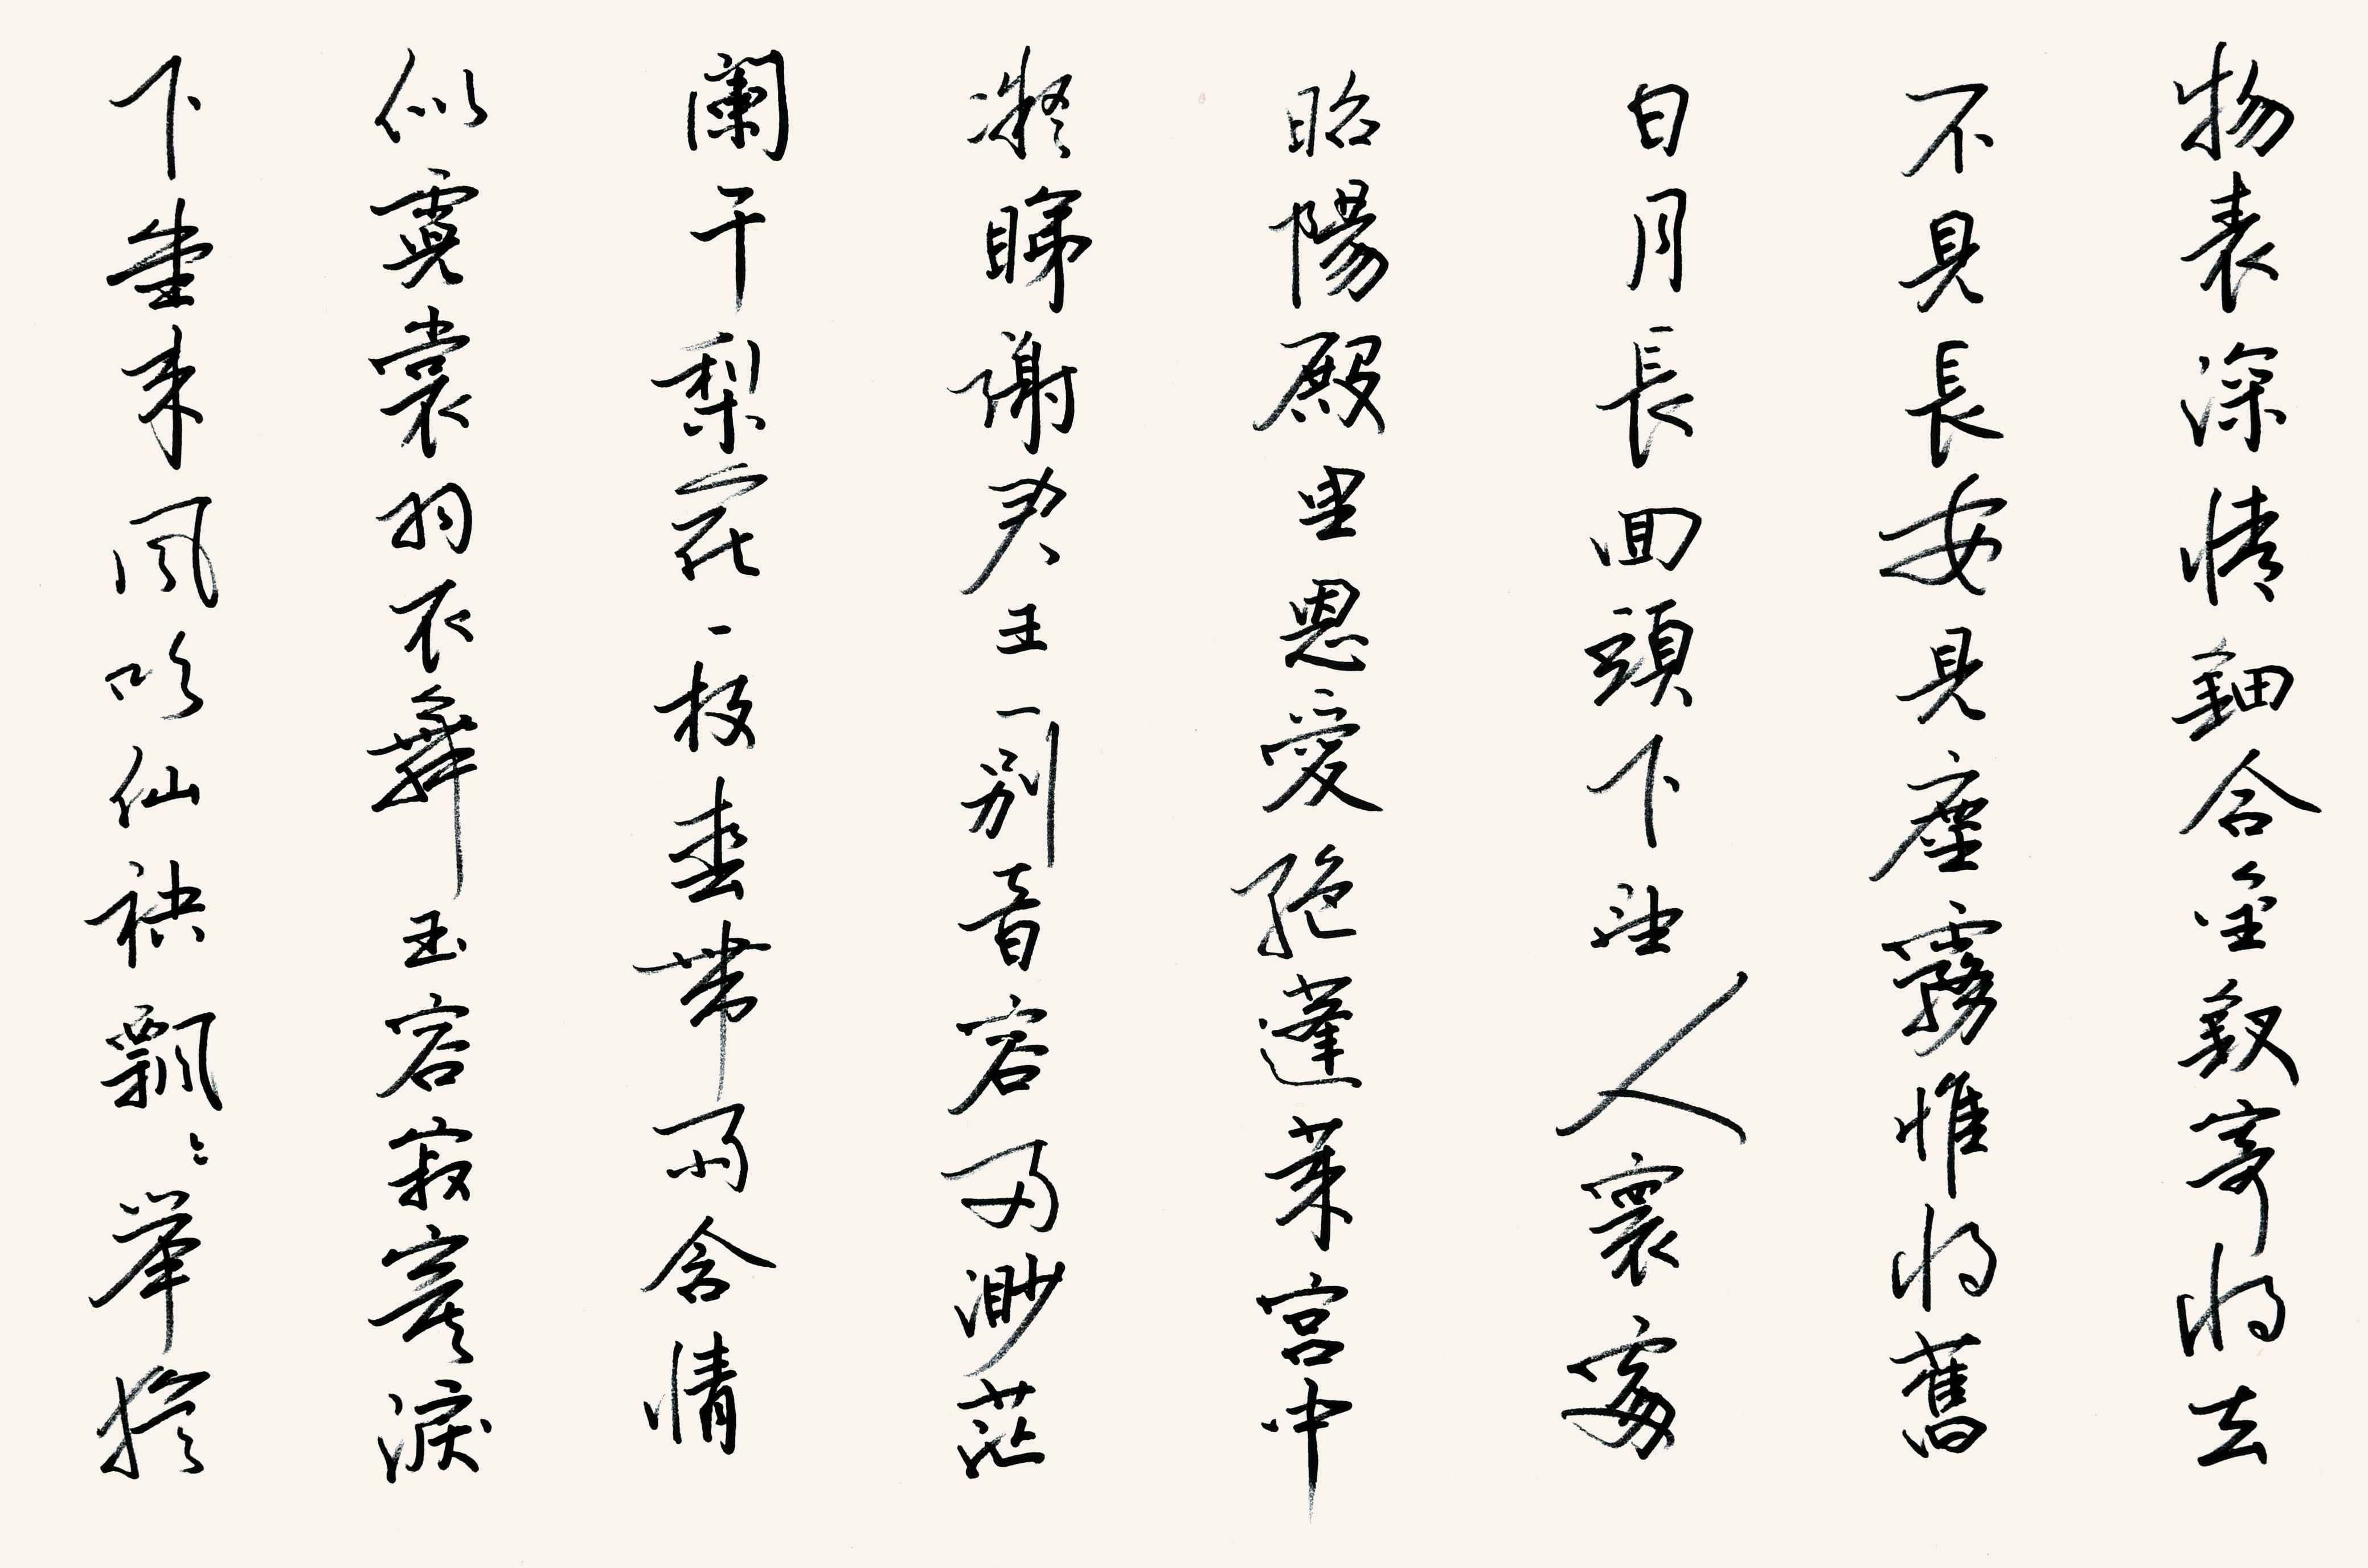 下堂来風吹仙袂飄飄举猶
似霓裳羽衣舞玉容寂寞淚
闌干梨花一枝春帶雨含情
凝睇謝君王一别音容两渺茫
昭陽殿里恩愛絕蓬莱宫中
日月長回頭下望人寰處
不見長安見塵霧惟将舊
物表深情鈿合金釵寄将去